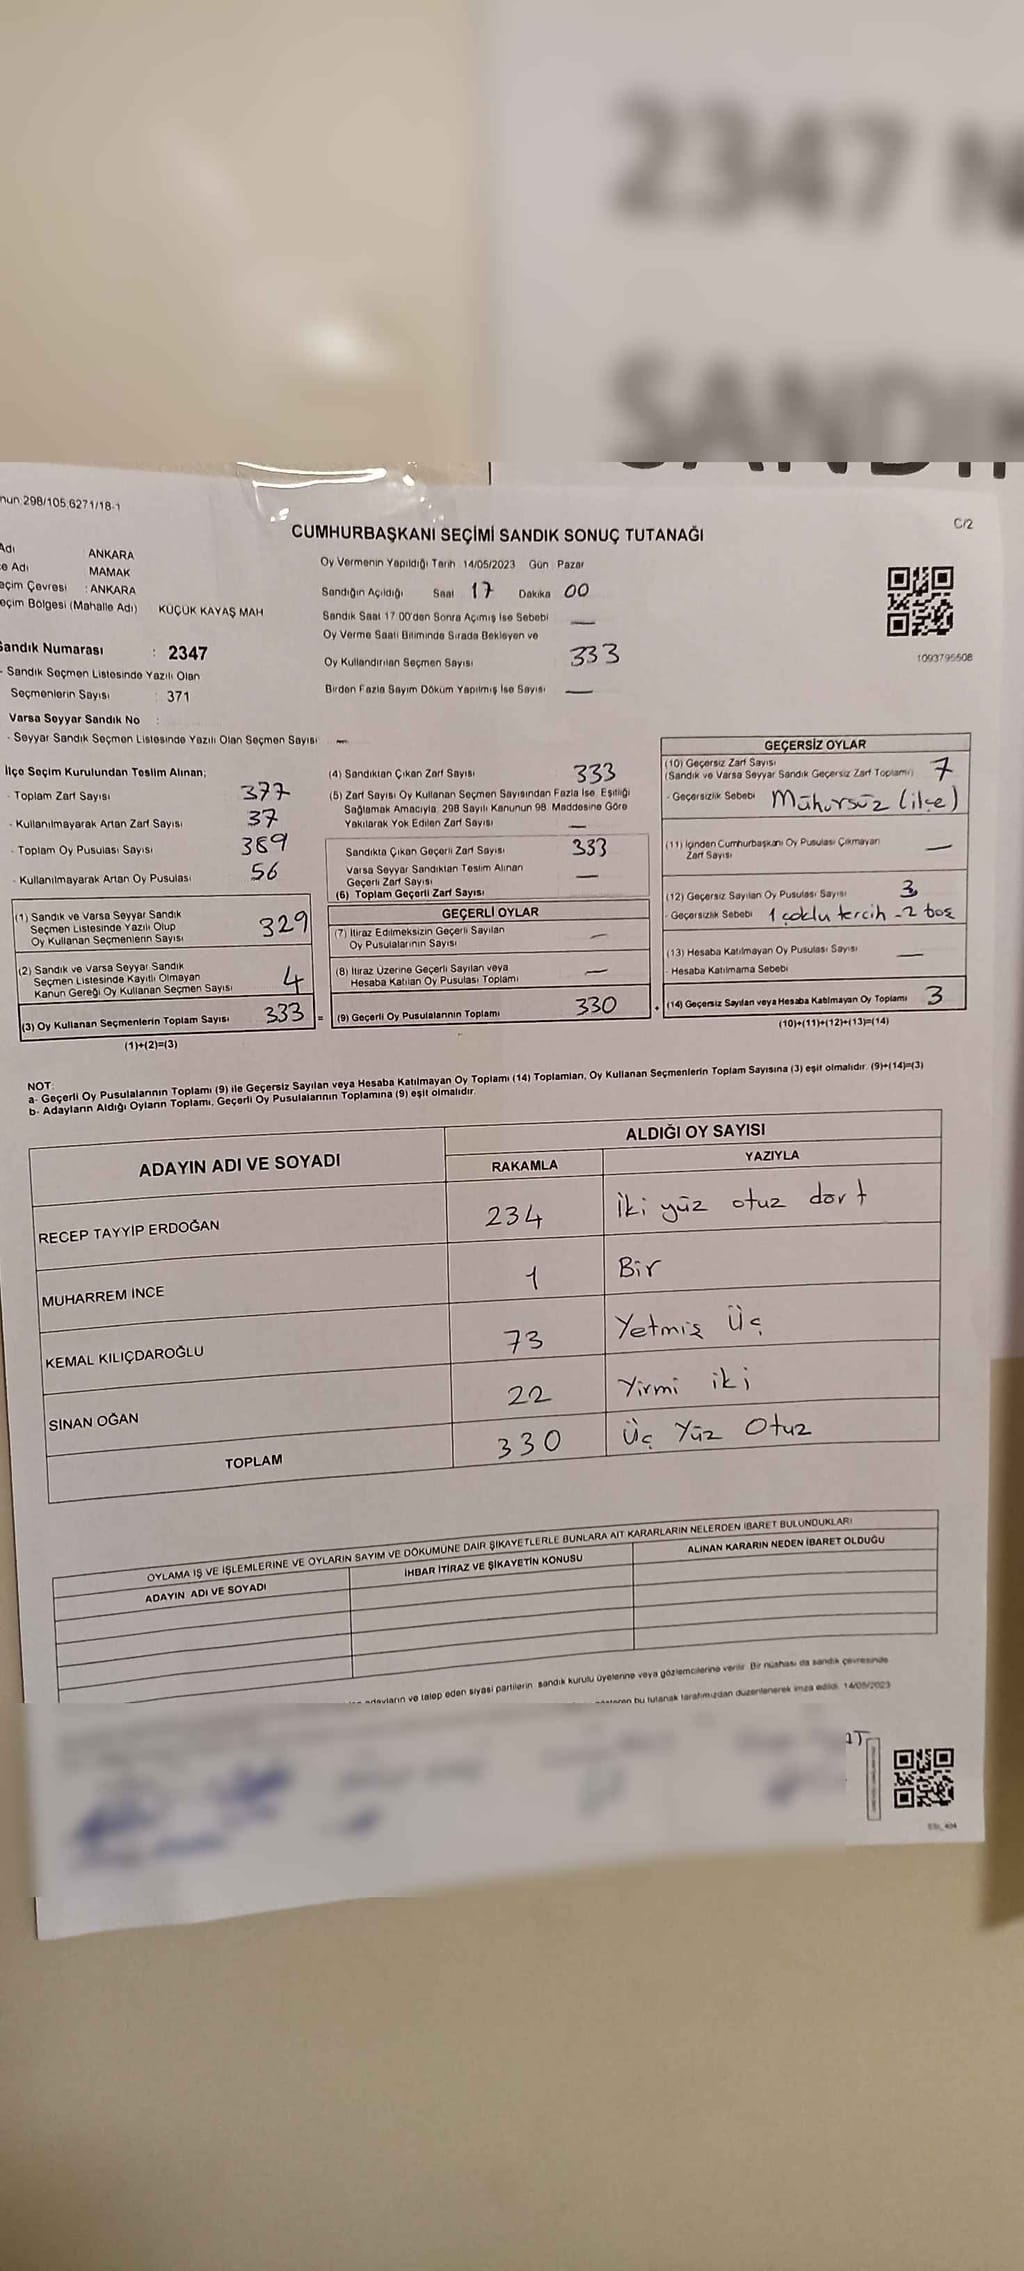 2347 N
SANDIK
nun 298/105 6271/18-1
C/2
CUMHURBAŞKANI SEÇİMİ SANDIK SONUÇ TUTANAĞI
Adı ANKARA
e Adı MAMAK
eçim Çevresi : ANKARA
eçim Bölgesi (Mahalle Adı) KÜÇÜK KAYAŞ MAH
Sandık Numarası : 2347
- Sandık Seçmen Listesinde Yazılı Olan
Seçmenlerin Sayısı : 371
Varsa Seyyar Sandık No :
- Seyyar Sandık Seçmen Listesinde Yazılı Olan Seçmen Sayısı —
Oy Vermenin Yapıldığı Tarih 14/05/2023 Gün Pazar
Sandığın Açıldığı Saat 17 Dakika 00
Sandık Saat 17 00'den Sonra Açımış İse Sebebi —
Oy Verme Saati Bitiminde Sırada Bekleyen ve
Oy Kullandırılan Seçmen Sayısı 333
Birden Fazla Sayım Döküm Yapılmış İse Sayısı —
1093795508
İlçe Seçim Kurulundan Teslim Alınan;
- Toplam Zarf Sayısı 377
- Kullanılmayarak Artan Zarf Sayısı 37
- Toplam Oy Pusulası Sayısı 389
- Kullanılmayarak Artan Oy Pusulası 56
(1) Sandık ve Varsa Seyyar Sandık
Seçmen Listesinde Yazılı Olup
Oy Kullanan Seçmenlerin Sayısı 329
(2) Sandık ve Varsa Seyyar Sandık
Seçmen Listesinde Kayıtlı Olmayan
Kanun Gereği Oy Kullanan Seçmen Sayısı 4
(3) Oy Kullanan Seçmenlerin Toplam Sayısı 333 =
(1)+(2)=(3)
(4) Sandıktan Çıkan Zarf Sayısı 333
(5) Zarf Sayısı Oy Kullanan Seçmen Sayısından Fazla İse, Eşitliği
Sağlamak Amacıyla, 298 Sayılı Kanunun 98. Maddesine Göre
Yakılarak Yok Edilen Zarf Sayısı —
Sandıkta Çıkan Geçerli Zarf Sayısı 333
Varsa Seyyar Sandıktan Teslim Alınan
Geçerli Zarf Sayısı —
(6) Toplam Geçerli Zarf Sayısı
GEÇERLİ OYLAR
(7) İtiraz Edilmeksizin Geçerli Sayılan
Oy Pusulalarının Sayısı —
(8) İtiraz Üzerine Geçerli Sayılan veya
Hesaba Katılan Oy Pusulası Toplamı —
(9) Geçerli Oy Pusulalarının Toplamı 330
GEÇERSİZ OYLAR
(10) Geçersiz Zarf Sayısı
(Sandık ve Varsa Seyyar Sandık Geçersiz Zarf Toplamı) 7
- Geçersizlik Sebebi Mühürsüz (ilçe)
(11) İçinden Cumhurbaşkanı Oy Pusulası Çıkmayan
Zarf Sayısı —
(12) Geçersiz Sayılan Oy Pusulası Sayısı 3
- Geçersizlik Sebebi 1 çoklu tercih - 2 boş
(13) Hesaba Katılmayan Oy Pusulası Sayısı —
- Hesaba Katılmama Sebebi
(14) Geçersiz Sayılan veya Hesaba Katılmayan Oy Toplamı 3
(10)+(11)+(12)+(13)=(14)
NOT:
a- Geçerli Oy Pusulalarının Toplamı (9) ile Geçersiz Sayılan veya Hesaba Katılmayan Oy Toplamı (14) Toplamları, Oy Kullanan Seçmenlerin Toplam Sayısına (3) eşit olmalıdır. (9)+(14)=(3)
b- Adayların Aldığı Oyların Toplamı, Geçerli Oy Pusulalarının Toplamına (9) eşit olmalıdır.
ADAYIN ADI VE SOYADI
ALDIĞI OY SAYISI
RAKAMLA YAZIYLA
RECEP TAYYİP ERDOĞAN 234 İki yüz otuz dört
MUHARREM İNCE 1 Bir
KEMAL KILIÇDAROĞLU 73 Yetmiş Üç
SİNAN OĞAN 22 Yirmi iki
TOPLAM 330 Üç Yüz Otuz
OYLAMA İŞ VE İŞLEMLERİNE VE OYLARIN SAYIM VE DÖKÜMÜNE DAİR ŞİKAYETLERLE BUNLARA AİT KARARLARIN NELERDEN İBARET BULUNDUKLARI
ADAYIN ADI VE SOYADI İHBAR İTİRAZ VE ŞİKAYETİN KONUSU ALINAN KARARIN NEDEN İBARET OLDUĞU
adayların ve talep eden siyasi partilerin sandık kurulu üyelerine veya gözlemcilerine verilir. Bir nüshası da sandık çevresinde
gösteren bu tutanak tarafımızdan düzenlenerek imza edildi. 14/05/2023